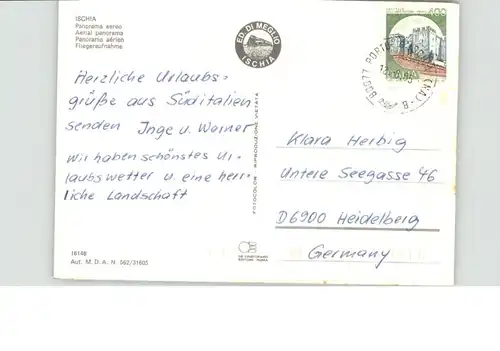 ISCHIA
Panorama aereo
Aerial panorama
Panorama aérien
Fliegeraufnahme
ED. DI MEGLIO
ISCHIA
400
80077 PORTO
(NA) - B -
Herzliche Urlaubs-
grüße aus Süditalien
senden Inge u. Werner
Wir haben schönstes Ur-
laubswetter u. eine herr-
liche Landschaft
FOTOCOLOR RIPRODUZIONE VIETATA
Klara Herbig
Untere Seegasse 46
D6900 Heidelberg
Germany
16146
Aut. M. D. A. N. 562/31605